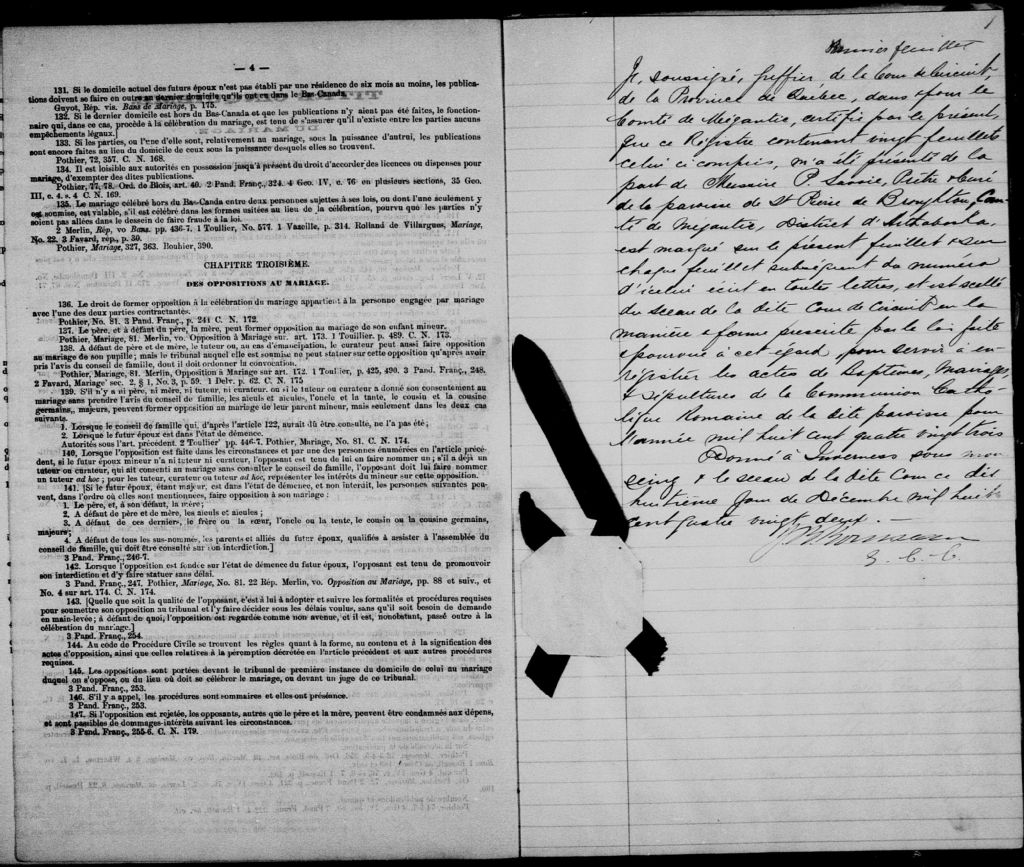 — 4 —
131. Si le domicile actuel des futurs époux n'est pas établi par une résidence de six mois au moins, les publica-
tions doivent se faire en outre au dernier domicile qu'ils ont eu dans le Bas-Canada.
Guyot, Rép. vis. Bans de Mariage, p. 175.
132. Si le dernier domicile est hors du Bas-Canada et que les publications n'y aient pas été faites, le fonction-
naire qui, dans ce cas, procède à la célébration du mariage, est tenu de s'assurer qu'il n'existe entre les parties aucuns
empêchements légaux.]
133. Si les parties, ou l'une d'elles sont, relativement au mariage, sous la puissance d'autrui, les publications
sont encore faites au lieu du domicile de ceux sous la puissance desquels elles se trouvent.
Pothier, 72, 357. C. N. 168.
134. Il est loisible aux autorités en possession jusqu'à présent du droit d'accorder des licences ou dispenses pour
mariage, d'exempter des dites publications.
Pothier, 77, 78. Ord. de Blois, art. 40. 2 Pand. Franç., 324. 4 Geo. IV, c. 76 en plusieurs sections, 35 Geo.
III, c. 4. s. 4 C. N. 169.
135. Le mariage célébré hors du Bas-Canada entre deux personnes sujettes à ses lois, ou dont l'une seulement y
est soumise, est valable, s'il est célébré dans les formes usitées au lieu de la célébration, pourvu que les parties n'y
soient pas allées dans le dessein de faire fraude à la loi.
2 Merlin, Rép, vo Bans. pp. 436-7. 1 Toullier, No. 577. 1 Vazeille, p. 314. Rolland de Villargues, Mariage,
No. 22. 3 Favard, rép., p. 30.
Pothier, Mariage, 327, 363. Bouhier, 390.
CHAPITRE TROISIÈME.
DES OPPOSITIONS AU MARIAGE.
136. Le droit de former opposition à la célébration du mariage appartient à la personne engagée par mariage
avec l'une des deux parties contractantes.
Pothier, No. 81. 3 Pand. Franç., p. 241 C. N. 172.
137. Le père, et à défaut du père, la mère, peut former opposition au mariage de son enfant mineur.
Pothier, Mariage, 81. Merlin, vo. Opposition à Mariage sur. art. 173. 1 Touillier. p. 489. C. N. 173.
138. A défaut de père et de mère, le tuteur ou, au cas d'émancipation, le curateur peut aussi faire opposition
au mariage de son pupille; mais le tribunal auquel elle est soumise ne peut statuer sur cette opposition qu'après avoir
pris l'avis du conseil de famille, dont il doit ordonner la convocation.
Pothier, Mariage, 81. Merlin, Opposition à Mariage sur art. 172. 1 Toullier, p. 425, 490. 3 Pand. Franç., 248.
2 Favard, Mariage sec. 2. § 1, No. 3, p. 59. 1 Delv. p. 62. C. N. 175
139. S'il n'y a ni père, ni mère, ni tuteur, ni curateur, ou si le tuteur ou curateur a donné son consentement au
mariage sans prendre l'avis du conseil de famille, les aïeuls et aïeules, l'oncle et la tante, le cousin et la cousine
germains, majeurs, peuvent former opposition au mariage de leur parent mineur, mais seulement dans les deux cas
suivants.
1. Lorsque le conseil de famille qui, d'après l'article 122, aurait dû être consulté, ne l'a pas été;
2. Lorsque le futur époux est dans l'état de démence.
Autorités sous l'art. précédent. 2 Toullier pp. 446-7. Pothier, Mariage, No. 81. C. N. 174.
140. Lorsque l'opposition est faite dans les circonstances et par une des personnes énumérées en l'article précé-
dent, si le futur époux mineur n'a ni tuteur ni curateur, l'opposant est tenu de lui en faire nommer un; s'il a déjà un
tuteur ou curateur, qui ait consenti au mariage sans consulter le conseil de famille, l'opposant doit lui faire nommer
un tuteur ad hoc; pour les tuteur, curateur ou tuteur ad hoc, représenter les intérêts du mineur sur cette opposition.
141. [Si le futur époux, étant majeur, est dans l'état de démence, et non interdit, les personnes suivantes peu-
vent, dans l'ordre où elles sont mentionnées, faire opposition à son mariage:
1. Le père, et, à son défaut, la mère;
2. A défaut de père et de mère, les aïeuls et aïeules;
3. A défaut de ces derniers, le frère ou la sœur, l'oncle ou la tente, le cousin ou la cousine germains,
majeurs;
4. A défaut de tous les sus-nommés, les parents et alliés du futur époux, qualifiés à assister à l'assemblée du
conseil de famille, qui doit être consulté sur son interdiction.]
3 Pand. Franç., 246-7.
142. Lorsque l'opposition est fondée sur l'état de démence du futur époux, l'opposant est tenu de promouvoir
son interdiction et d'y faire statuer sans délai.
3 Pand. Franç., 247. Pothier, Mariage, No. 81. 22 Rép. Merlin, vo. Opposition au Mariage, pp. 88 et suiv., et
No. 4 sur art. 174. C. N. 174.
143. [Quelle que soit la qualité de l'opposant, c'est à lui à adopter et suivre les formalités et procédures requises
pour soumettre son opposition au tribunal et l'y faire décider sous les délais voulus, sans qu'il soit besoin de demande
en main-levée; à défaut de quoi, l'opposition est regardée comme non avenue, et il est, nonobstant, passé outre à la
célébration du mariage.]
3 Pand. Franç., 254.
144. Au code de Procédure Civile se trouvent les règles quant à la forme, au contenu et à la signification des
actes d'opposition, ainsi que celles relatives à la péremption décrétée en l'article précédent et aux autres procédures
requises.
145. Les oppositions sont portées devant le tribunal de première instance du domicile de celui au mariage
duquel on s'oppose, ou du lieu où doit se célébrer le mariage, ou devant un juge de ce tribunal.
3 Pand. Franç., 253.
146. S'il y a appel, les procédures sont sommaires et elles ont préséance.
3 Pand. Franç., 253.
147. Si l'opposition est rejetée, les opposants, autres que le père et la mère, peuvent être condamnés aux dépens,
et sont passibles de dommages-intérêts suivant les circonstances.
3 Pand. Franç., 255-6. C. N. 179.
1
Premier feuillet
Je, soussigné, greffier de la Cour de Circuit,
de la Province de Québec, dans & pour le
Comté de Mégantic, certifie par le présent,
que ce Registre contenant vingt feuillets
celui ci compris, m'a été présenté de la
part de Messire P. Savoie, Prêtre & Curé
de la paroisse de St Pierre de Broughton, Com-
té de Mégantic, District d'Arthabaska,
est marqué sur le présent feuillet & sur
chaque feuillet subséquent du numéro
d'icelui écrit en toutes lettres, et est scellé
du sceau de la dite Cour de Circuit en la
manière & forme prescrite par la loi faite
& pourvue à cet égard, pour servir à en-
régistrer les actes de Baptêmes, Mariages,
& Sépultures de la Communion Catho-
lique Romaine de la dite paroisse pour
l'année mil huit cent quatre vingt trois
Donné à Inverness sous mon
seing & le sceau de la dite Cour ce dix
huitième jour de Décembre mil huit
cent quatre vingt deux. —
G. C. C.